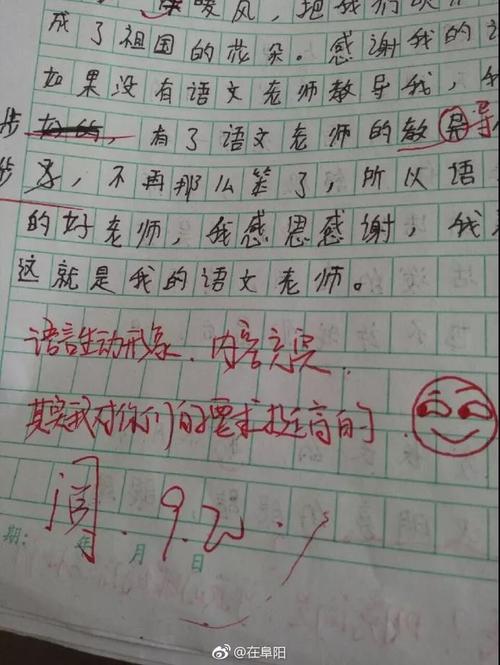 暖风，把我们吹
成了祖国的花朵。感谢我的
如果没有语文老师教导我，
步 好的，有了语文老师的教导导
步了，不再那么笨了，所以语
的好老师，我感恩感谢，我
这就是我的语文老师。
语言生动形象．内容充实．
其实我对你们的要求挺高的
阅．9.20．
期： 年 月 日
@在阜阳